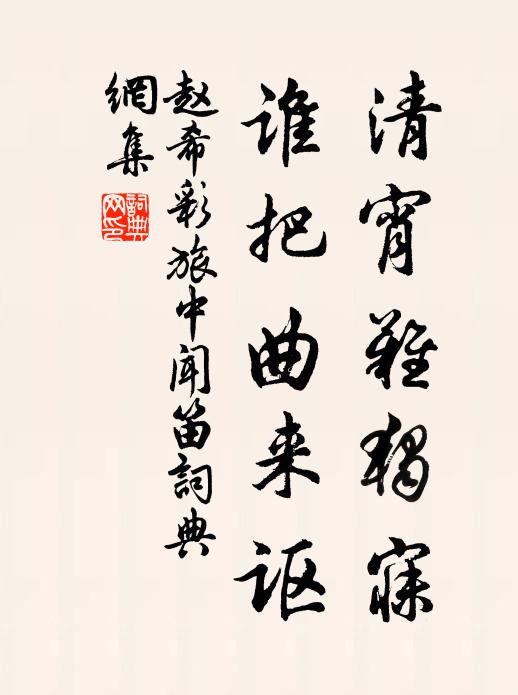 清宵難独寐
谁把曲来讴
赵希彩旅中闻笛詞典
網集
詞典
网印